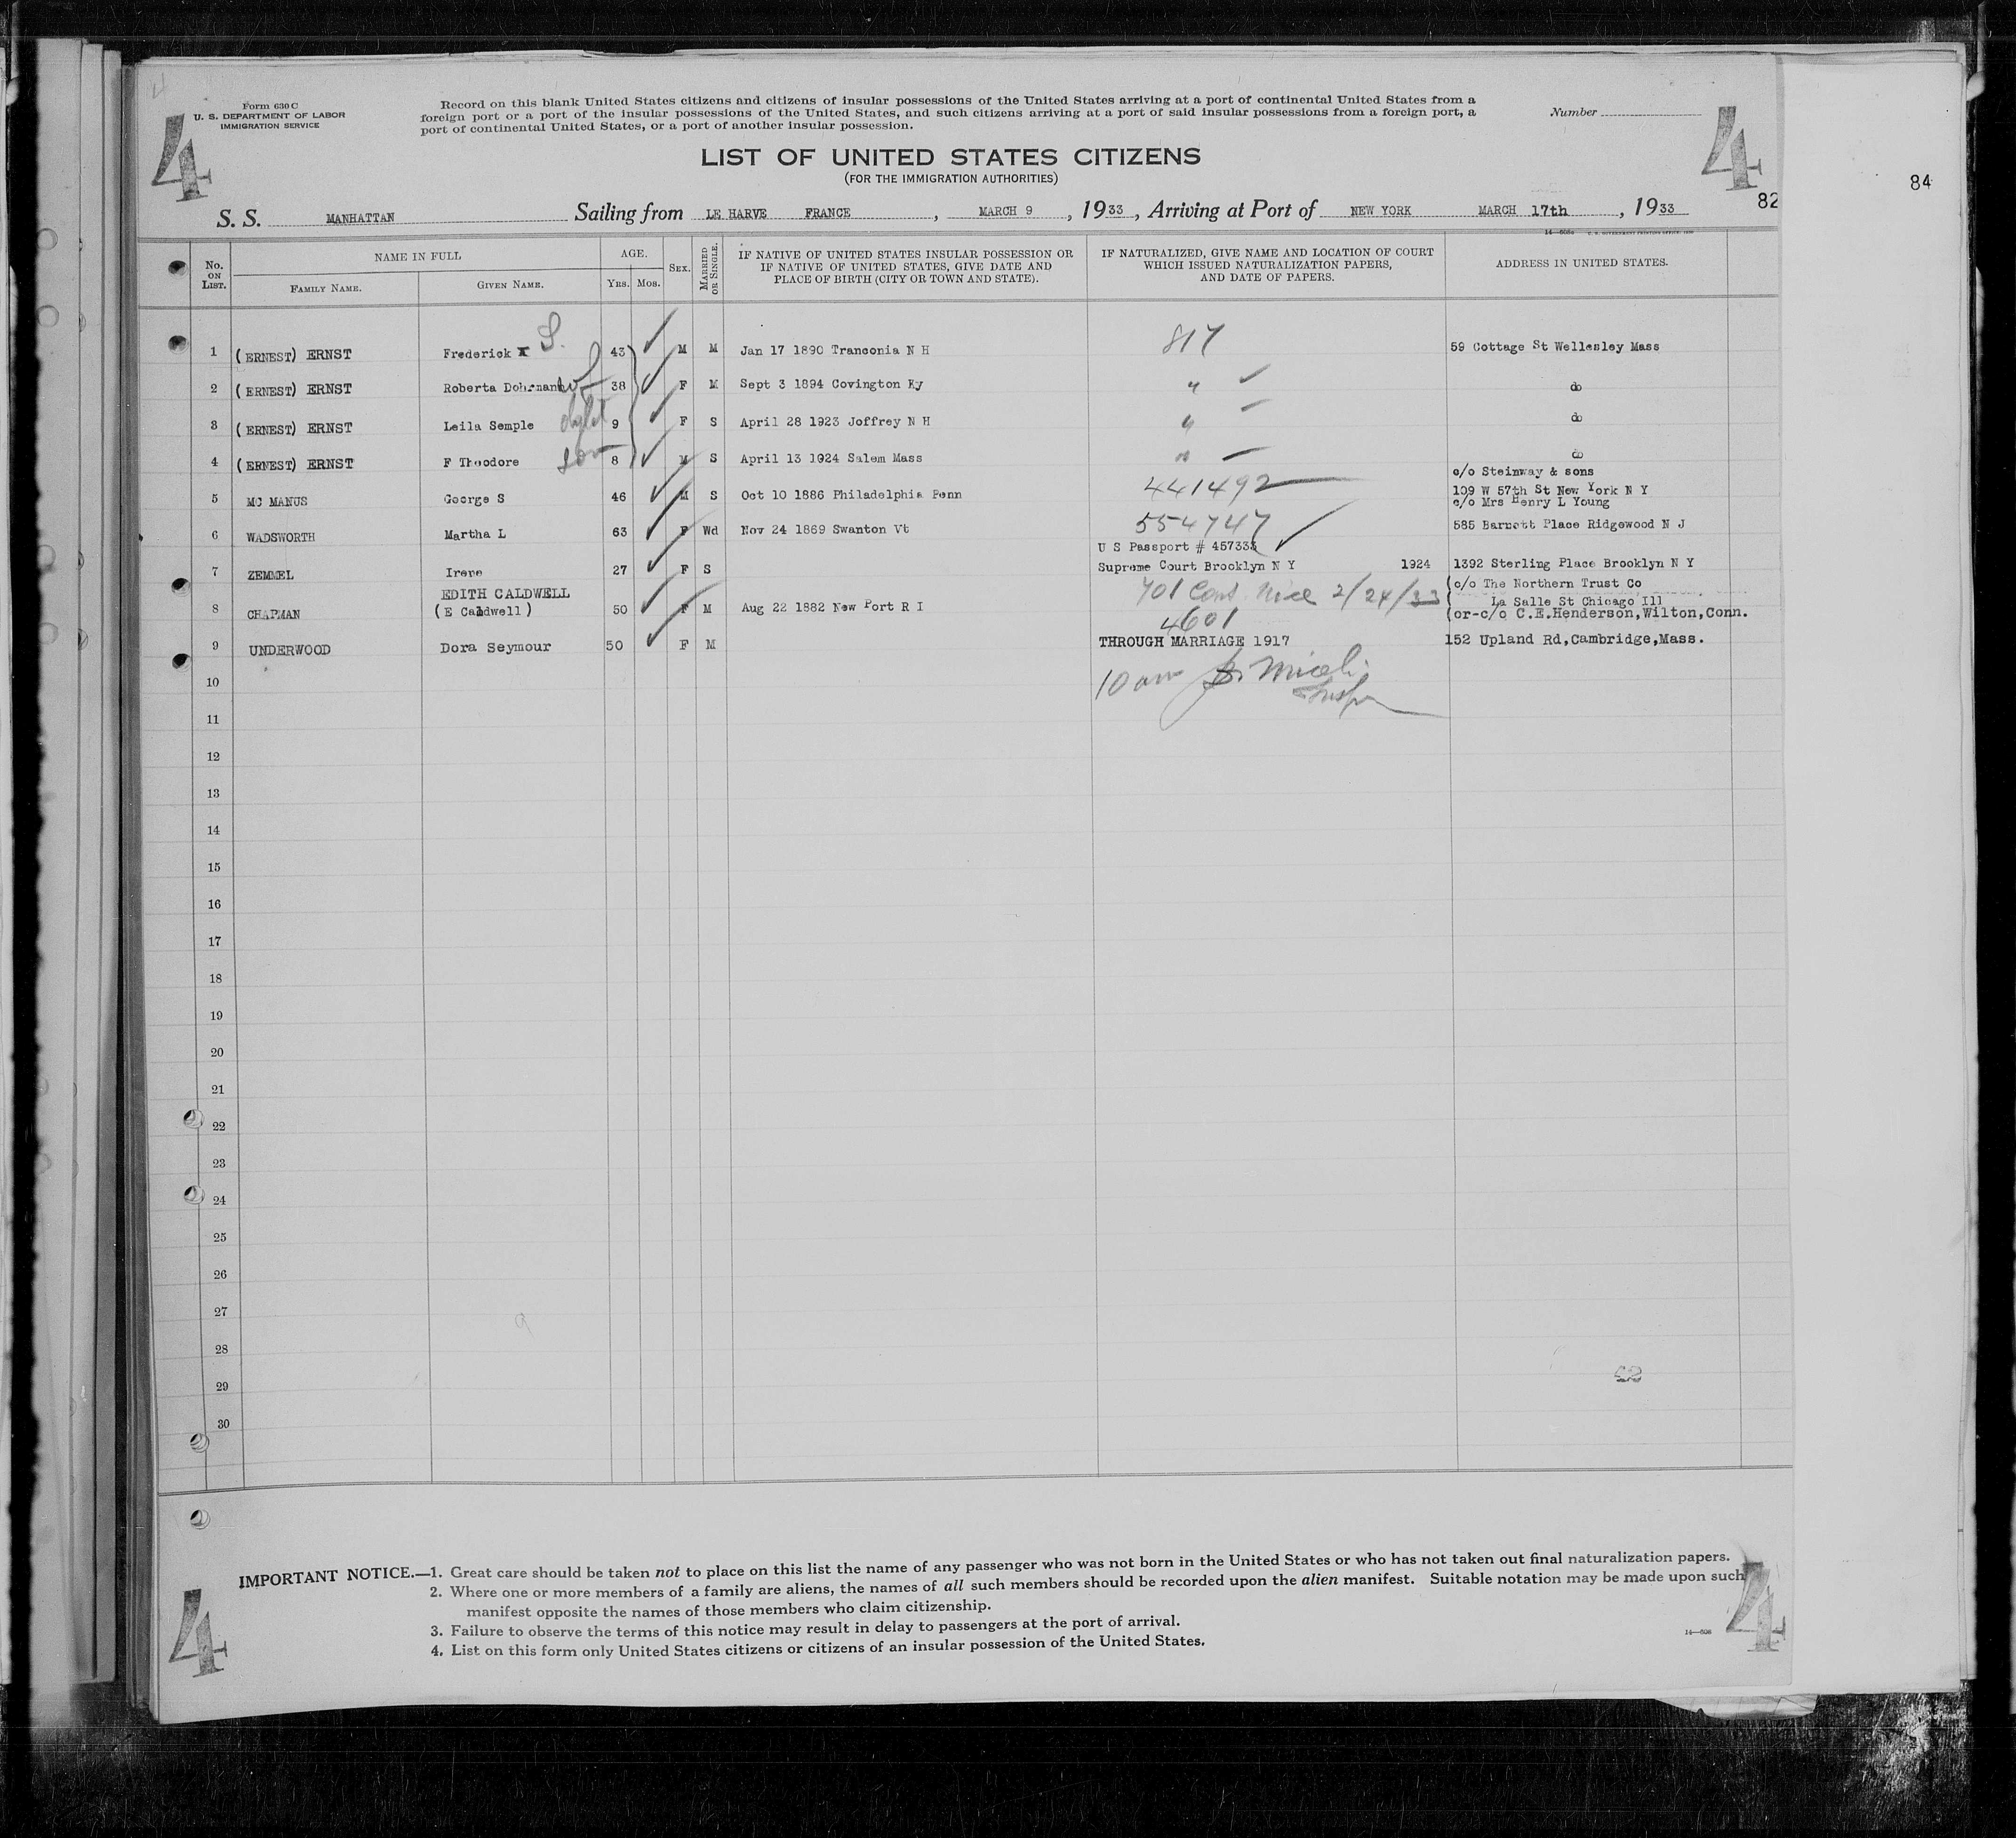 Form 630 C
U. S. DEPARTMENT OF LABOR
IMMIGRATION SERVICE
Record on this blank United States citizens and citizens of insular possessions of the United States arriving at a port of continental United States from a
foreign port or a port of the insular possessions of the United States, and such citizens arriving at a port of said insular possessions from a foreign port, a
port of continental United States, or a port of another insular possession.
Number
4
4
84
LIST OF UNITED STATES CITIZENS
(FOR THE IMMIGRATION AUTHORITIES)
82
S. S. MANHATTAN Sailing from LE HARVE FRANCE , MARCH 9 , 1933 , Arriving at Port of NEW YORK MARCH 17th , 1933
No. ON LIST. NAME IN FULL FAMILY NAME. GIVEN NAME. AGE. YRS. MOS. SEX. MARRIED OR SINGLE. IF NATIVE OF UNITED STATES INSULAR POSSESSION OR IF NATIVE OF UNITED STATES, GIVE DATE AND PLACE OF BIRTH (CITY OR TOWN AND STATE). IF NATURALIZED, GIVE NAME AND LOCATION OF COURT WHICH ISSUED NATURALIZATION PAPERS, AND DATE OF PAPERS. ADDRESS IN UNITED STATES.
1 (ERNEST) ERNST Frederick S. 43 M M Jan 17 1890 Tranconia N H 817 59 Cottage St Wellesley Mass
2 (ERNEST) ERNST Roberta Dohrnann wf 38 F M Sept 3 1894 Covington Ky " do
3 (ERNEST) ERNST Leila Semple 9 F S April 28 1923 Joffrey N H " do
4 (ERNEST) ERNST F Theodore son 8 M S April 13 1924 Salem Mass " do
5 MC MANUS George S 46 M S Oct 10 1886 Philadelphia Penn 441492 c/o Steinway & sons
109 W 57th St New York N Y
6 WADSWORTH Martha L 63 F Wd Nov 24 1869 Swanton Vt 554747 c/o Mrs Henry L Young
585 Barnett Place Ridgewood N J
U S Passport # 457333
7 ZEMMEL Irene 27 F S Supreme Court Brooklyn N Y 1924 1392 Sterling Place Brooklyn N Y
EDITH CALDWELL 701 Cons. Nice 2/24/33 (c/o The Northern Trust Co
8 CHAPMAN (E Caldwell) 50 F M Aug 22 1882 New Port R I La Salle St Chicago Ill
4601 (or-c/o C.E.Henderson,Wilton,Conn.
9 UNDERWOOD Dora Seymour 50 F M THROUGH MARRIAGE 1917 152 Upland Rd,Cambridge,Mass.
10 10 am Miceli Insp
11
12
13
14
15
16
17
18
19
20
21
22
23
24
25
26
27
28
29
30
IMPORTANT NOTICE.—1. Great care should be taken not to place on this list the name of any passenger who was not born in the United States or who has not taken out final naturalization papers.
2. Where one or more members of a family are aliens, the names of all such members should be recorded upon the alien manifest. Suitable notation may be made upon such
manifest opposite the names of those members who claim citizenship.
3. Failure to observe the terms of this notice may result in delay to passengers at the port of arrival.
4. List on this form only United States citizens or citizens of an insular possession of the United States.
14—608
4
4